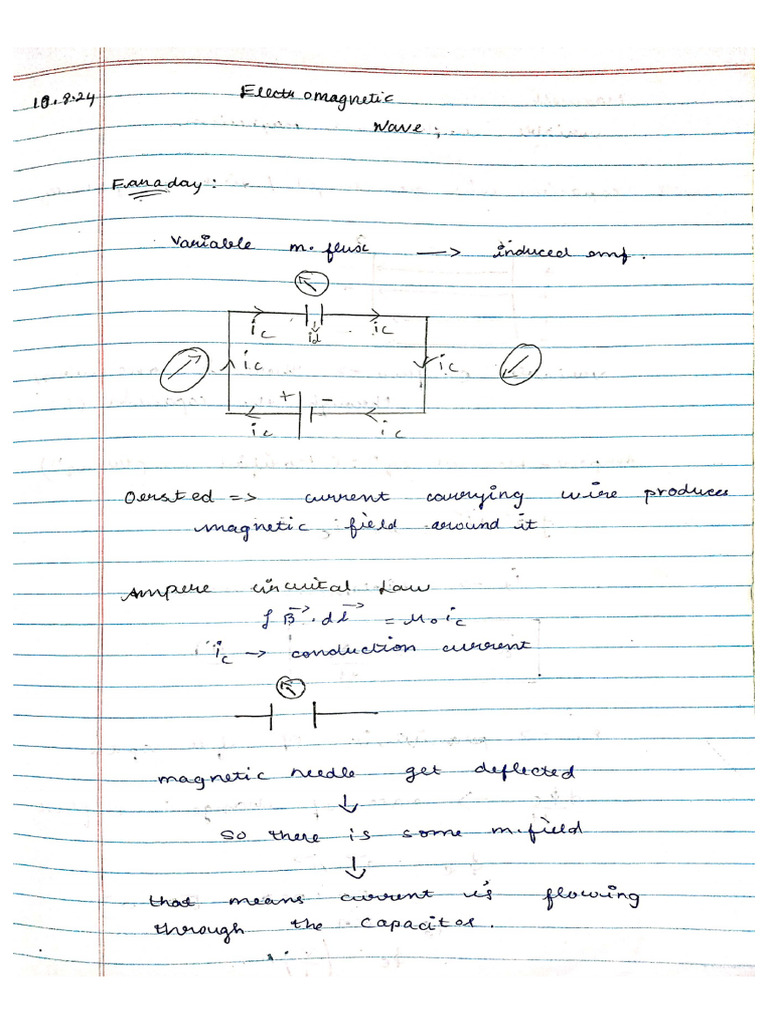 10.8.24
Electromagnetic
Wave;
Faraday:
Variable m. flux → induced emf.
ic id ic
ic ic
+ -
ic ic
Oersted => current carrying wire produces
magnetic field around it
Ampere circuital Law
∮ B⃗·dl⃗ = μ₀ic
ic → conduction current
magnetic needle get deflected
↓
so there is some m.field
↓
that means current is flowing
through the capacitor.